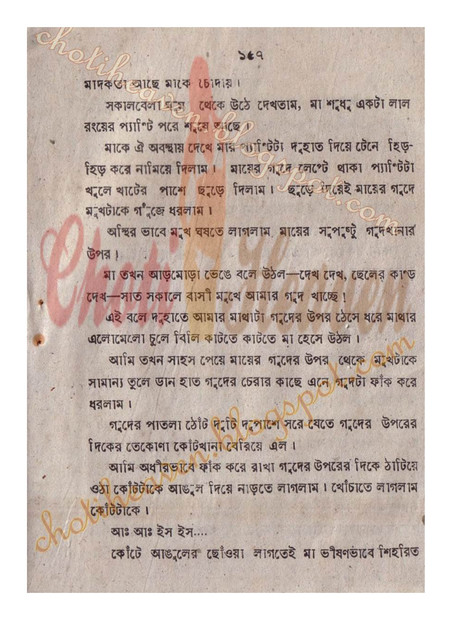 chotiheaven.blogspot.com
১৫৭
মাদকতা আছে মাকে চোদায়।
সকালবেলা ঘুম থেকে উঠে দেখতাম, মা শুধু একটা লাল
রংয়ের প্যান্টি পরে শুয়ে আছে।
মাকে ঐ অবস্থায় দেখে মার প্যান্টিটা দুহাত দিয়ে টেনে হিড়-
হিড় করে নামিয়ে দিলাম। মায়ের গুদে লেপ্টে থাকা প্যান্টিটা
খুলে খাটের পাশে ছুড়ে দিলাম। ছুড়ে দিয়েই মায়ের গুদে
মুখটাকে গুঁজে ধরলাম।
অস্থির ভাবে মুখ ঘষতে লাগলাম, মায়ের সুপুষ্টু গুদখানার
উপর।
মা তখন আড়মোড়া ভেঙে বলে উঠল—দেখ দেখ, ছেলের কান্ড
দেখ—সাত সকালে বাসী মুখে আমার গুদ খাচ্ছে!
এই বলে দুহাতে আমার মাথাটা গুদের উপর ঠেসে ধরে মাথার
এলোমেলো চুলে বিলি কাটতে কাটতে মা হেসে উঠল।
আমি তখন সাহস পেয়ে মায়ের গুদের উপর থেকে মুখটাকে
সামান্য তুলে ডান হাত গুদের চেরার কাছে এনে গুদটা ফাঁক করে
ধরলাম।
গুদের পাতলা ঠোঁট দুটি দুপাশে সরে যেতে গুদের উপরের
দিকের তেকোণা কোঁটখানা বেরিয়ে এল।
আমি অধীরভাবে ফাঁক করে রাখা গুদের উপরের দিকে ঠাটিয়ে
ওঠা কোঁটটাকে আঙুল দিয়ে নাড়তে লাগলাম। খোঁচাতে লাগলাম
কোঁটটাকে।
আঃ আঃ ইস ইস....
কোঁটে আঙুলের ছোঁওয়া লাগতেই মা ভীষণভাবে শিহরিত
Choti Heaven
chotiheaven.blogspot.com
chotiheaven.blogspot.com